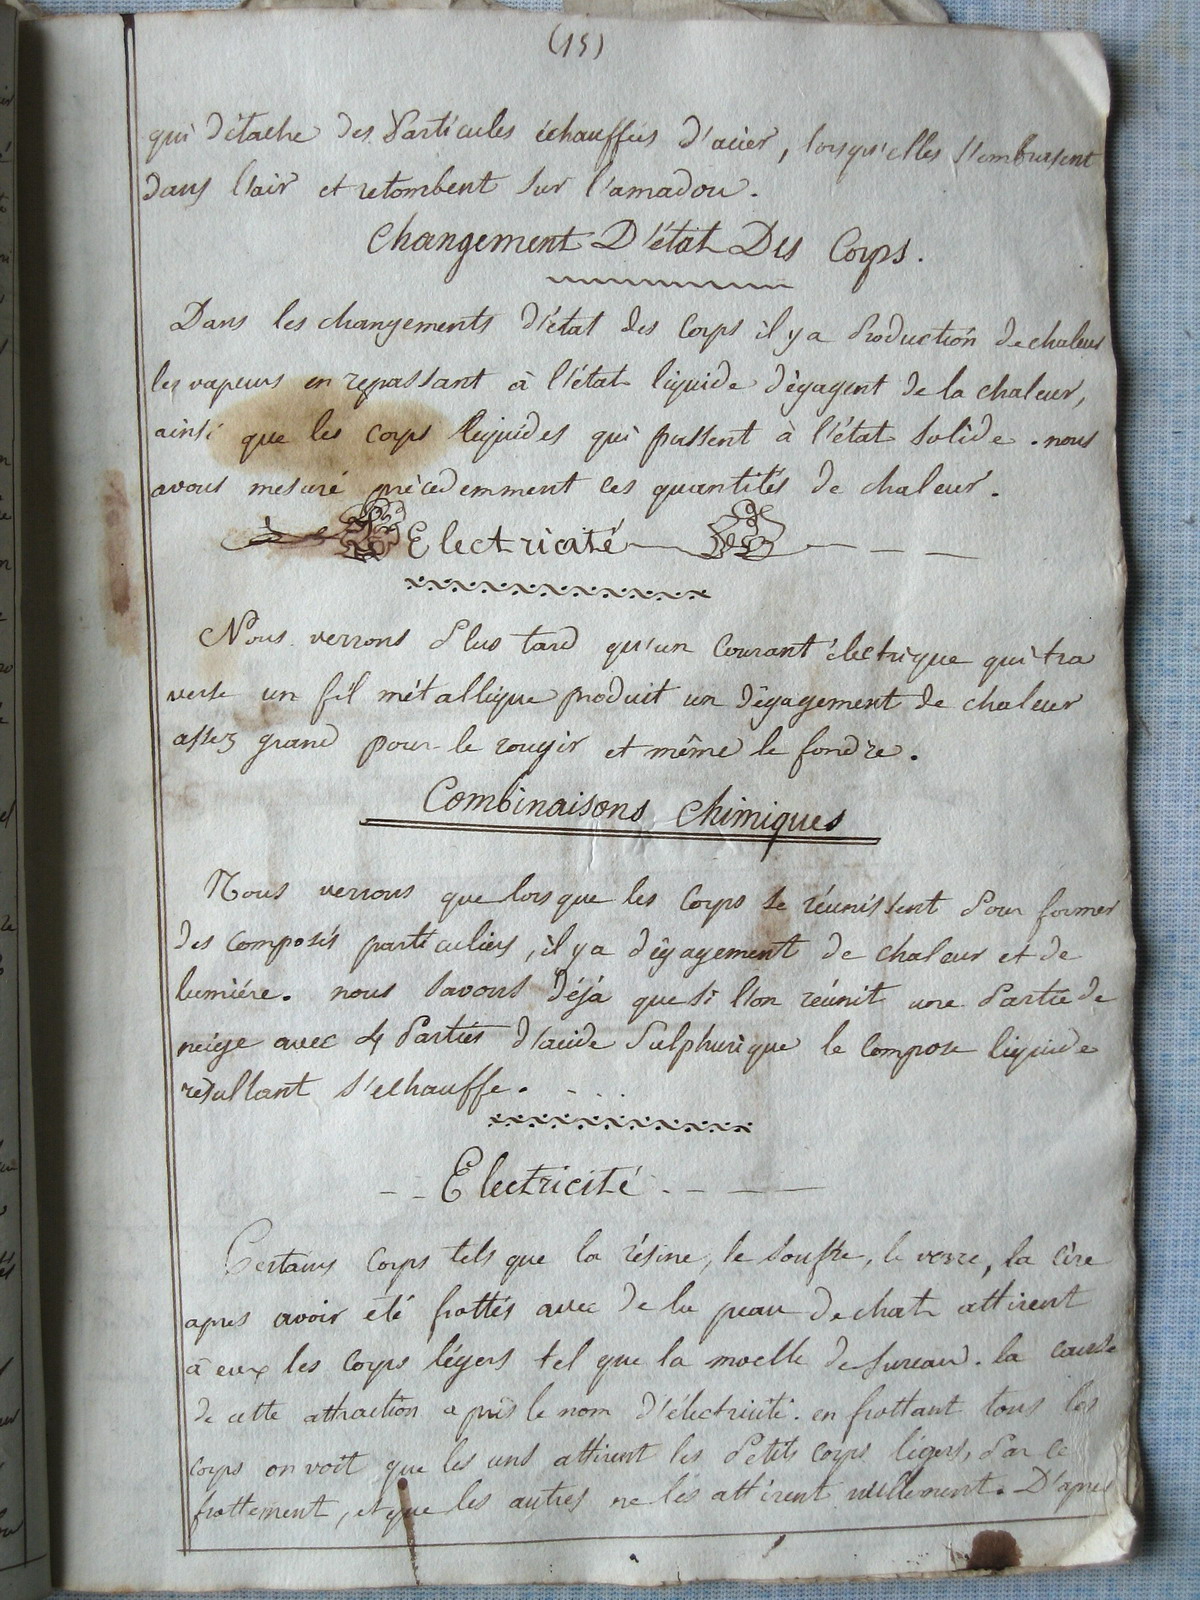 (15)
qui détache des Particules échauffées d'acier, lorsqu'elles s'embrasent
dans l'air et retombent sur l'amadou.
Changement D'état Des Corps.
Dans les changements d'état des Corps il y a Production de chaleur
les vapeurs en repassant à l'état liquide dégagent de la chaleur,
ainsi que les corps liquides qui passent à l'état solide. nous
avons mesuré précedemment ces quantités de chaleur.
Electricité
Nous verrons Plus tard qu'un Courant électrique qui tra
verse un fil métallique produit un dégagement de chaleur
assez grand pour le rougir et même le fondre.
Combinaisons Chimiques
Nous verrons que lorsque les Corps se réunissent Pour former
des composés particuliers, il y a dégagement de chaleur et de
lumiére. nous savons déjà que si l'on réunit une Partie de
neige avec 4 Parties d'acide Sulphurique le composé liquide
résultant s'echauffe.
Electricité
Certains Corps tels que la résine, le souffre, le verre, la cire
apres avoir été frottés avec de la peau de chat attirent
à eux les corps légers tel que la moelle de sureau. la cause
de cette attraction a pris le nom d'électricité. en frottant tous les
corps on voit que les uns attirent les Petits corps légers, Par ce
frottement, et que les autres ne les attirent nullement. D'apres